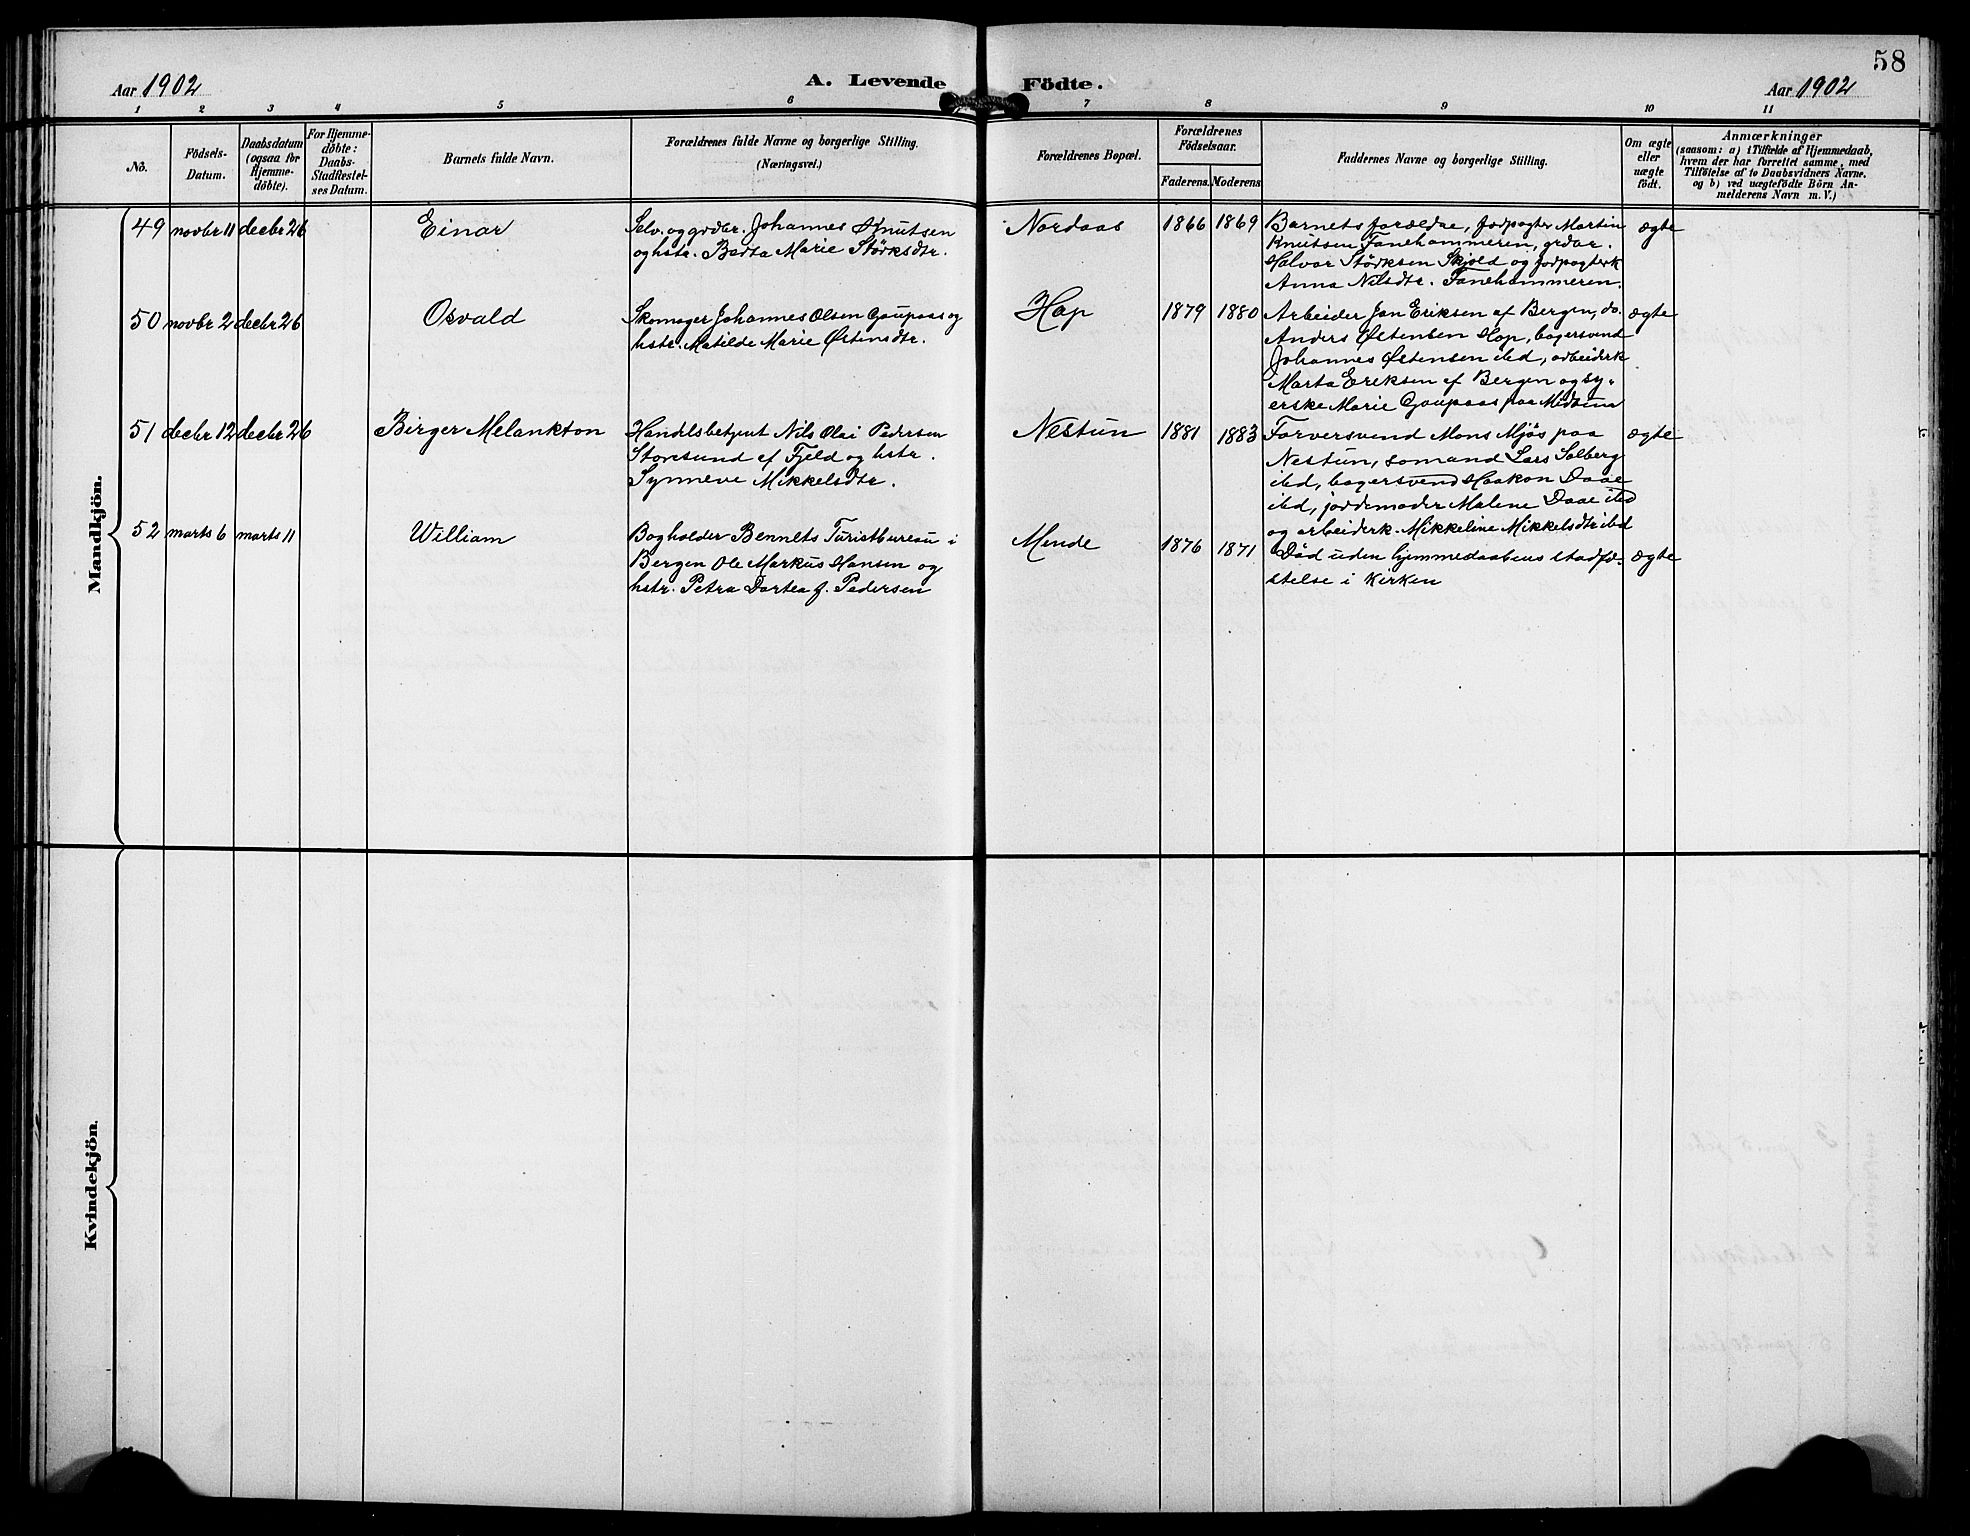 58
Aar 1902
A. Levende Födte.
Aar 1902
1 2 3 4 5 6 7 8 9 10 11
No.
Födsels-
Datum.
Daabsdatum
(ogsaa for
Hjemme-
döbte).
For Hjemme-
döbte:
Daabs-
Stadfæstel-
ses Datum.
Barnets fulde Navn.
Forældrenes fulde Navne og borgerlige Stilling.
(Næringsvei.)
Forældrenes Bopæl.
Forældrenes
Födselsaar.
Faderens. Moderens
Faddernes Navne og borgerlige Stilling.
Om ægte
eller
uægte
födt.
Anmærkninger
(saasom: a) i Tilfælde af Hjemmedaab,
hvem der har forrettet samme, med
Tilföielse af to Daabsvidners Navne.
og b) ved uægtefödte Börn An-
melderens Navn m. V.)
Mandkjön.
49 novbr 11 decbr 26 Einar
Selv. og grdbr. Johannes Knutsen
og hstr. Berta Marie Størksdtr.
Nordaas 1866 1869
Barnets forældre, jordpagter Martin
Knutsen Fanehammeren, grdbr.
Halvor Størksen Skjold og jordpagterk
Anna Nilsdtr. Fanehammeren.
ægte
50 novbr 2 decbr 26 Osvald
Skomager Johannes Olsen Gaupaas og
hstr. Matilde Marie Østensdtr.
Hop 1879 1880
Arbeider Jan Eriksen af Bergen, do.
Anders Østensen Hop, bagersvend
Johannes Østensen ibd, arbeiderk
Marta Eriksen af Bergen og sy-
erske Marie Gaupaas paa Midtun
ægte
51 decbr 12 decbr 26 Birger Melankton
Handelsbetjent Nils Olai Pedersen
Storesund af Fjeld og hstr.
Synneve Mikkelsdtr.
Nestun 1881 1883
Farversvend Mons Mjøs paa
Nestun, sømand Lars Solberg
ibd, bagersvend Haakon Daae
ibd, jordemoder Malene Daae ibd
og arbeiderk. Mikkeline Mikkelsdtr ibd
ægte
52 marts 6 marts 11 William
Bogholder Bennets Turistbureau i
Bergen Ole Markus Hansen og
hstr. Petra Dortea f. Pedersen
Minde 1876 1871
Død uden hjemmedaabens stadfæ-
stelse i kirken
ægte
Kvindekjön.